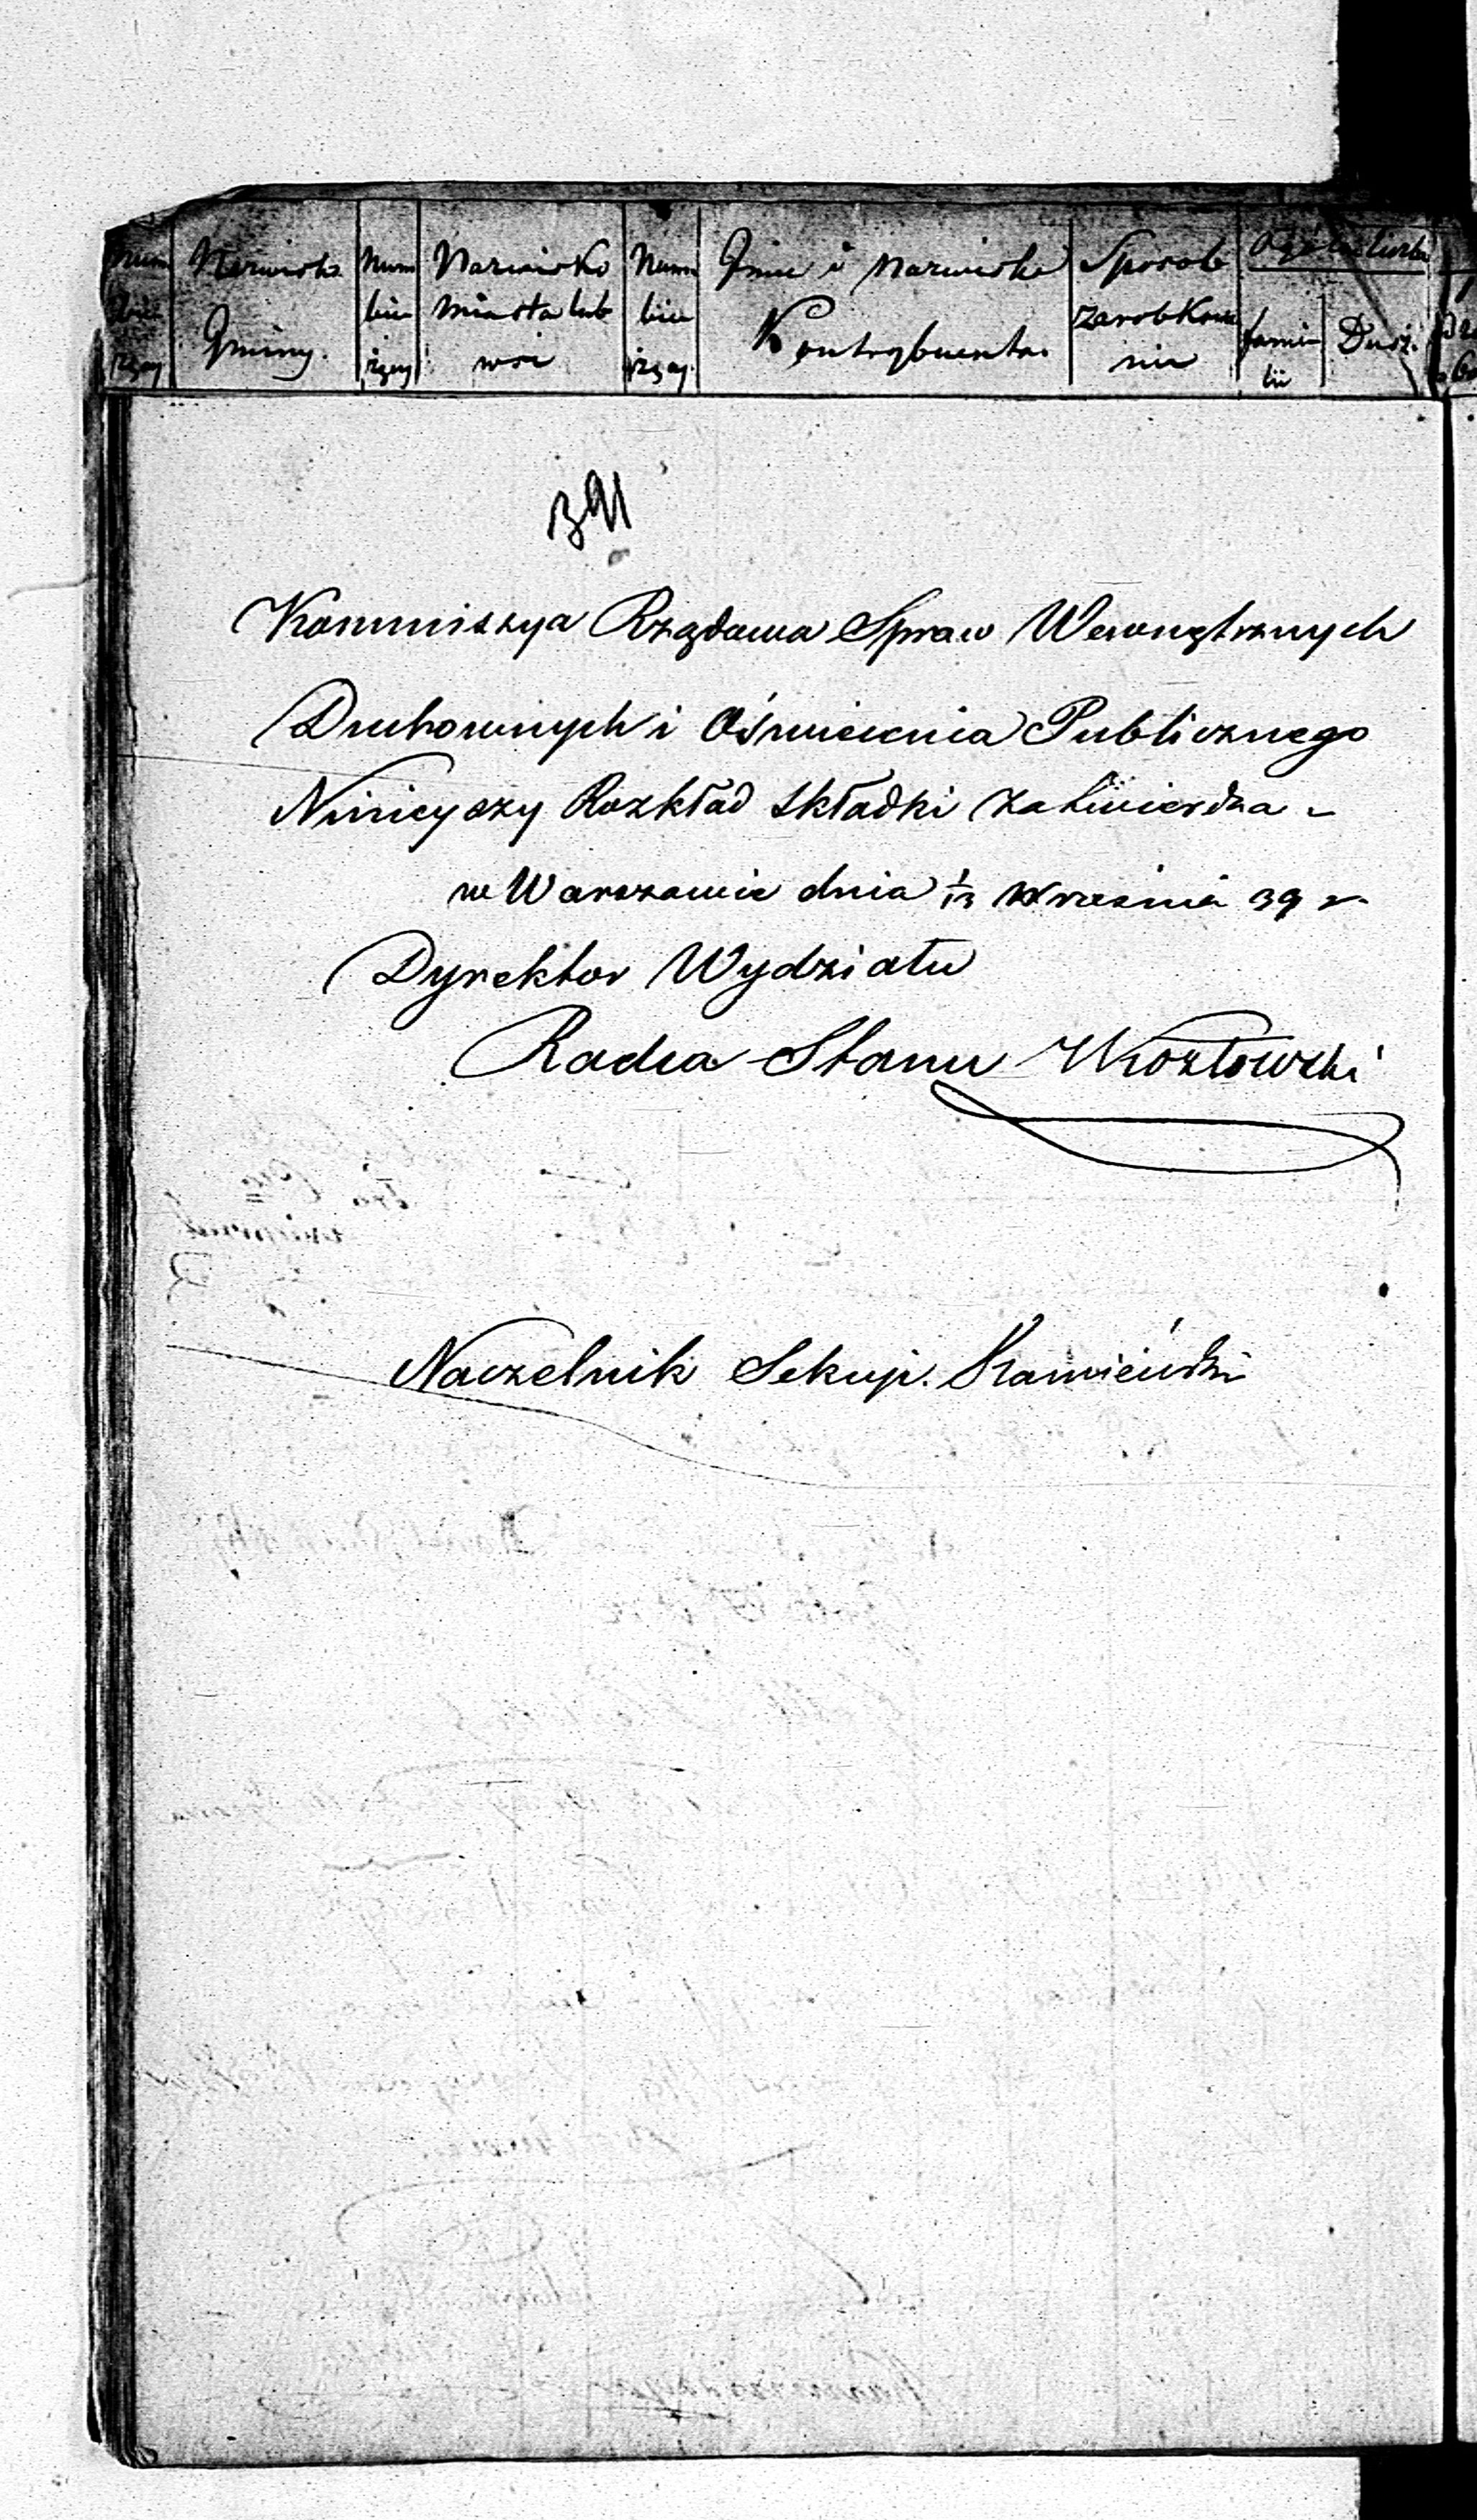 Nazwisko Gminy.
Num bie żący
Nazwisko miasta lub wsi
Num bie żący
Jmie i Nazwisko Kontrybuenta.
Sposób zarobkowa nia
Ogólna liczba
famie lii
Dusz.
391
Kommiszya Rządowa Spraw Wewnętrznych
Duchownych i Oświecenia Publicznego
Niniejszy Rozkład składki zatwierdza
w Warszawie dnia 1/13 Września 39 r.
Dyrektor Wydziału
Radca Stanu Kozłowski
Naczelnik Sekcyi.